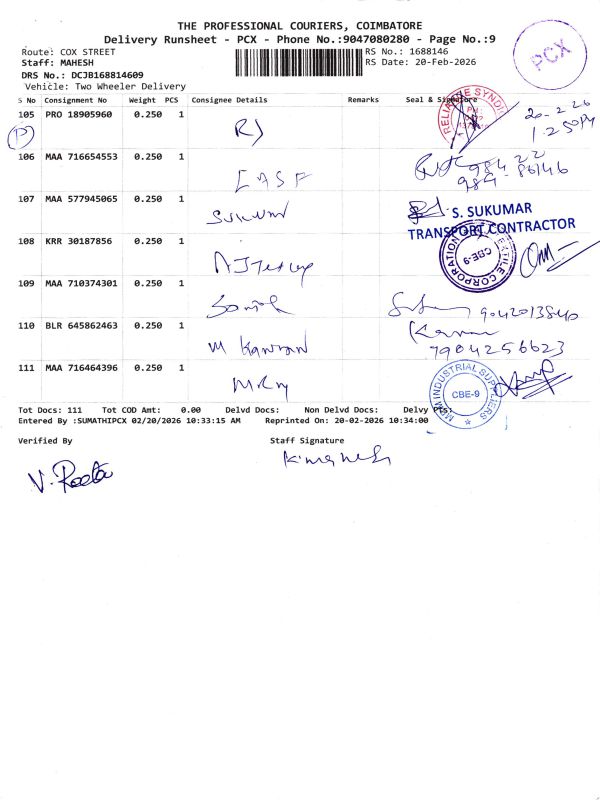 THE PROFESSIONAL COURIERS, COIMBATORE
Delivery Runsheet - PCX - Phone No.:9047080280 - Page No.:9
PCX
Route: COX STREET
RS No.: 1688146
Staff: MAHESH
RS Date: 20-Feb-2026
DRS No.: DCJB168814609
Vehicle: Two Wheeler Delivery
S No Consignment No Weight PCS Consignee Details Remarks Seal & Signature
105 PRO 18905960 0.250 1 RJ
20-2-26
1.50PM
P
106 MAA 716654553 0.250 1
107 MAA 577945065 0.250 1 Sukumar
S. SUKUMAR
TRANSPORT CONTRACTOR
108 KRR 30187856 0.250 1
CBE-9
109 MAA 710374301 0.250 1
9042013840
110 BLR 645862463 0.250 1 M Kannan
7904256623
111 MAA 716464396 0.250 1
MRM INDUSTRIAL SUPPLIERS
CBE-9
Tot Docs: 111 Tot COD Amt: 0.00 Delvd Docs: Non Delvd Docs: Delvy Pts:
Entered By :SUMATHIPCX 02/20/2026 10:33:15 AM Reprinted On: 20-02-2026 10:34:00
Verified By Staff Signature
V. Reeta K. Mahesh